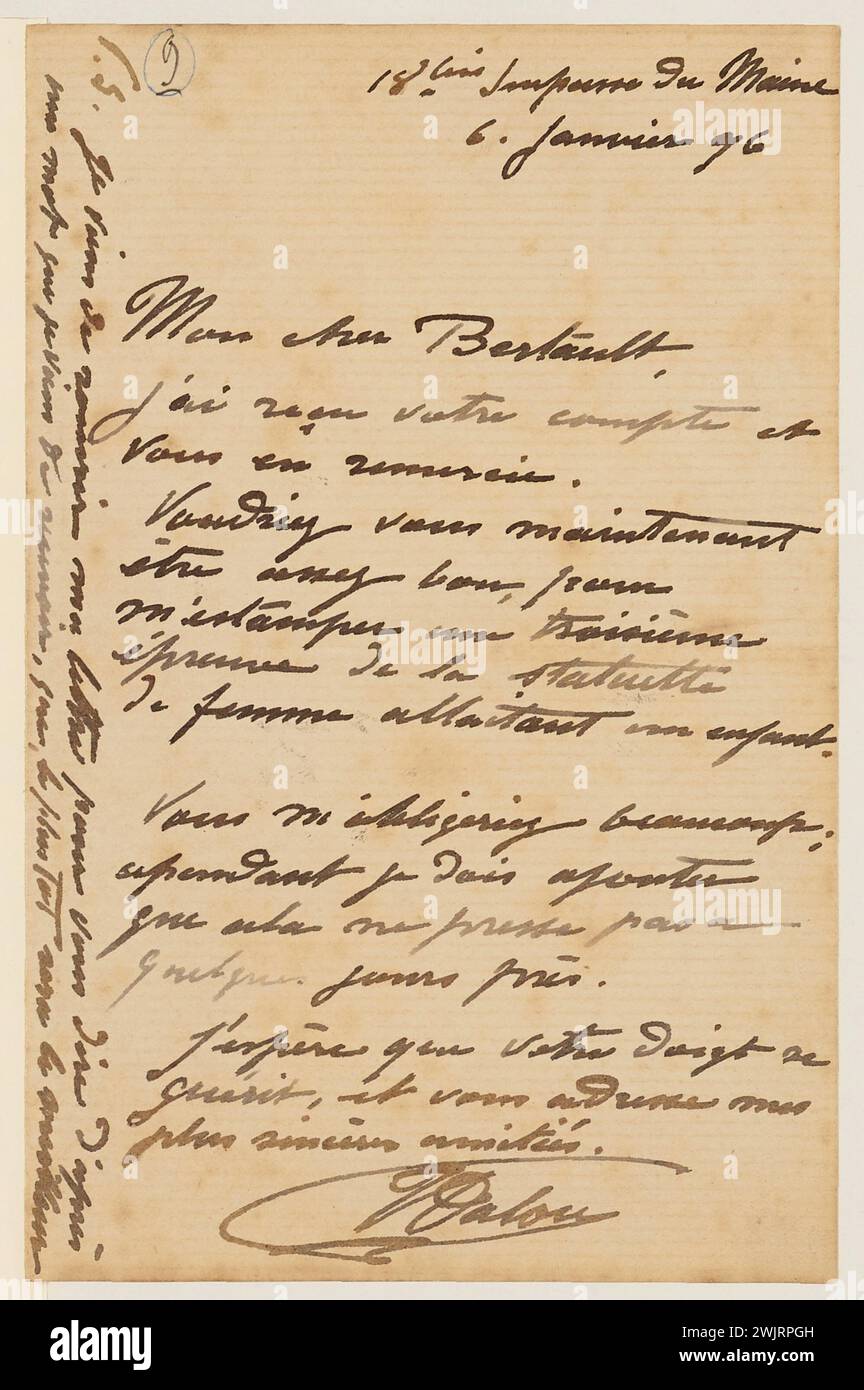 9
18 bis Impasse du Maine
6. Janvier 96
Mon cher Bertault,
J'ai reçu votre compte et
vous en remercie.
Voudriez vous maintenant
être assez bon, pour
m'estamper une troisième
épreuve de la statuette
de femme allaitant un enfant.
Vous m'obligeriez beaucoup;
cependant je dois ajouter
que cela ne presse pas à
quelques jours près.
J'espère que votre doigt se
guérit, et vous adresse mes
plus sincères amitiés.
Dalou
P.S. Je viens de rouvrir ma lettre pour vous dire d'après
une note que je viens de, que, le plus tôt sera le meilleur
alamy
Image ID: 2WJRPGH
www.alamy.com